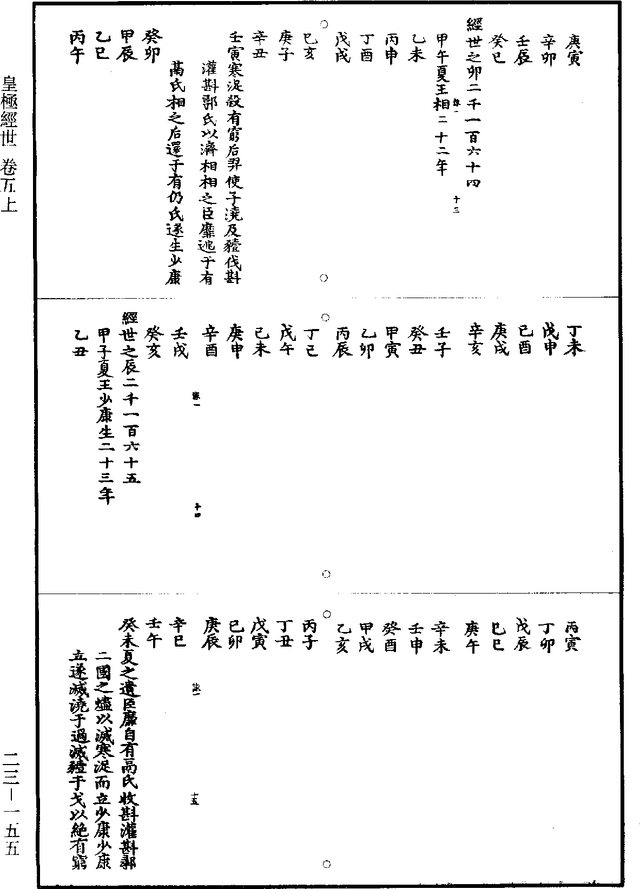 皇極經世 卷五上
庚寅
辛卯
壬辰
癸巳
經世之卯二千一百六十四
甲午夏王相二十二年
乙未
丙申
丁酉
戊戌
己亥
庚子
辛丑
壬寅寒浞殺有窮后羿使子澆及豷伐斟
灌斟鄩氏以滅相相之臣靡逃于有
鬲氏相之后還于有仍氏遂生少康
癸卯
甲辰
乙巳
丙午
十三
丁未
戊申
己酉
庚戌
辛亥
壬子
癸丑
甲寅
乙卯
丙辰
丁巳
戊午
己未
庚申
辛酉
壬戌
癸亥
經世之辰二千一百六十五
甲子夏王少康生二十三年
乙丑
十四
丙寅
丁卯
戊辰
己巳
庚午
辛未
壬申
癸酉
甲戌
乙亥
丙子
丁丑
戊寅
己卯
庚辰
辛巳
壬午
癸未夏之遺臣靡自有鬲氏收斟灌斟鄩
二國之燼以滅寒浞而立少康少康
立遂滅澆于過滅豷于戈以絕有窮
十五
二三－一五五